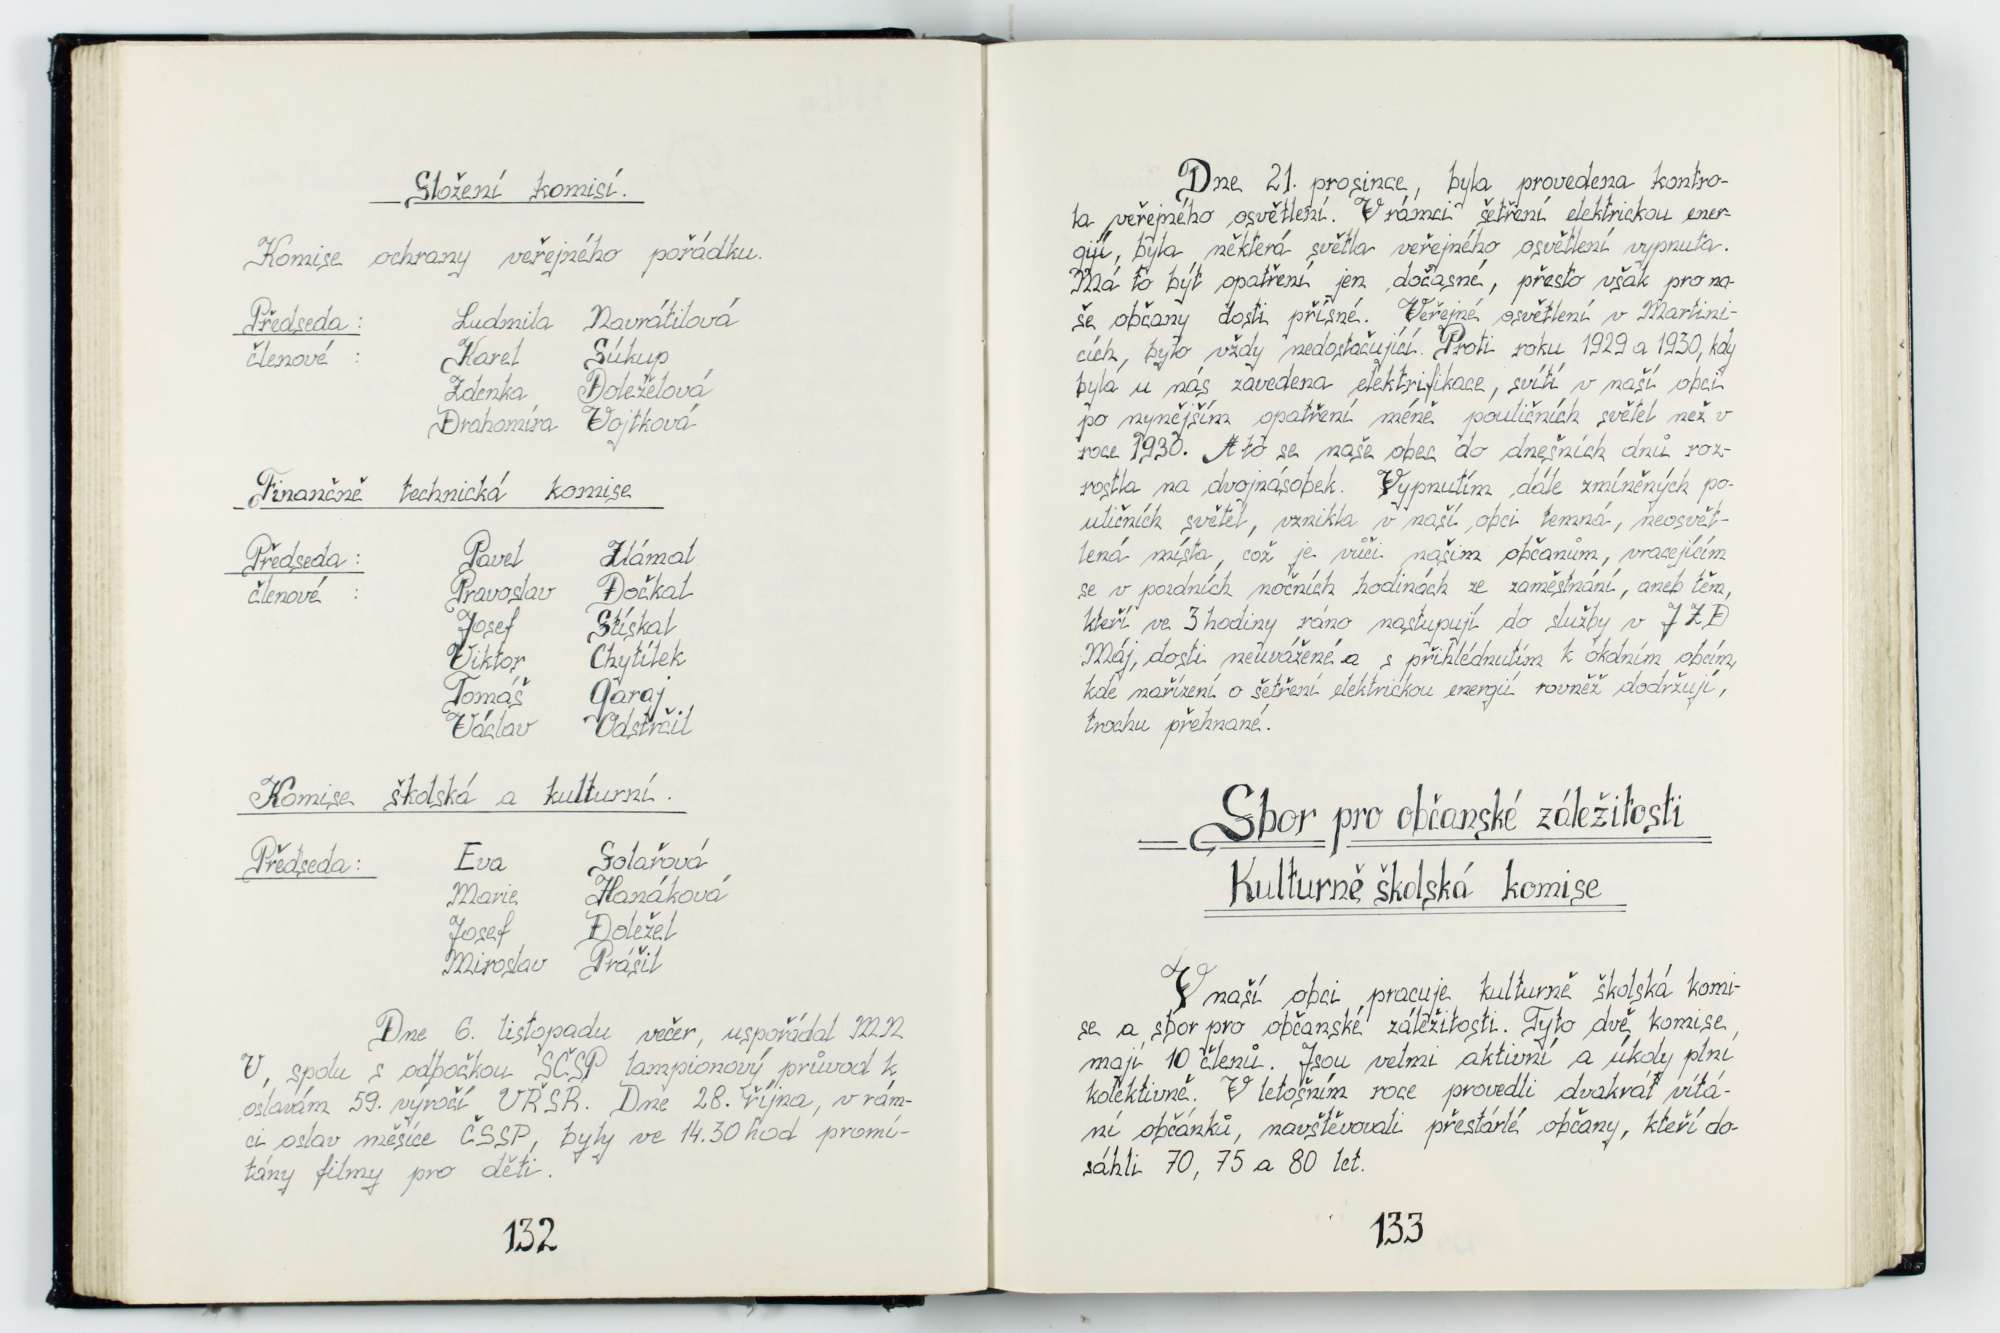 Složení komisí.
Komise ochrany veřejného pořádku.
Předseda: Ludmila Navrátilová
členové : Karel Súkup
Zdenka Doleželová
Drahomíra Vojtková
Finančně technická komise
Předseda: Pavel Zlámal
členové : Pravoslav Dočkal
Josef Stískal
Viktor Chytílek
Tomáš Garaj
Václav Odstrčil
Komise školská a kulturní.
Předseda: Eva Solařová
Marie Hanáková
Josef Doležel
Miroslav Prášil
Dne 6. listopadu večer, uspořádal MN
V, spolu s odbočkou SČSP lampionový průvod k
oslavám 59. výročí VŘSR. Dne 28. října, v rám-
ci oslav měsíce ČSSP, byly ve 14.30 hod promí-
tány filmy pro děti.
132
Dne 21. prosince, byla provedena kontro-
la veřejného osvětlení. V rámci šetření elektrickou ener-
gií, byla některá světla veřejného osvětlení vypnuta.
Má to být opatření jen dočasné, přesto však pro na-
še občany dosti přísné. Veřejné osvětlení v Martini-
cích, bylo vždy nedostačující. Proti roku 1929 a 1930, kdy
byla u nás zavedena elektrifikace, svítí v naší obci
po nynějším opatření méně pouličních světel než v
roce 1930. A to se naše obec do dnešních dnů roz-
rostla na dvojnásobek. Vypnutím dále zmíněných po-
uličních světel, vznikla v naší obci temná, neosvět-
lená místa, což je vůči našim občanům, vracejícím
se v pozdních nočních hodinách ze zaměstnání, aneb těm,
kteří ve 3 hodiny ráno nastupují do služby v JZD
Máj, dosti neuvážené a s přihlédnutím k okdním obcím,
kde nařízení o šetření elektrickou energií rovněž dodržují,
trochu přehnané.
Sbor pro občanské záležitosti
Kulturně školská komise
V naší obci pracuje kulturně školská komi-
se a sbor pro občanské záležitosti. Tyto dvě komise,
mají 10 členů. Jsou velmi aktivní a úkoly plní
kolektivně. V letošním roce provedli dvakrát vítá-
ní občánků, navštěvovali přestárlé občany, kteří do-
sáhli 70, 75 a 80 let.
133